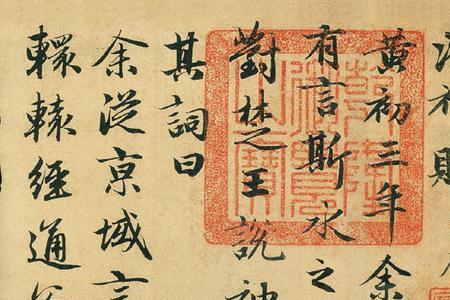 黃初三年余
有言斯水之
對楚王說神
其詞曰
余從京域言
轘轅經通